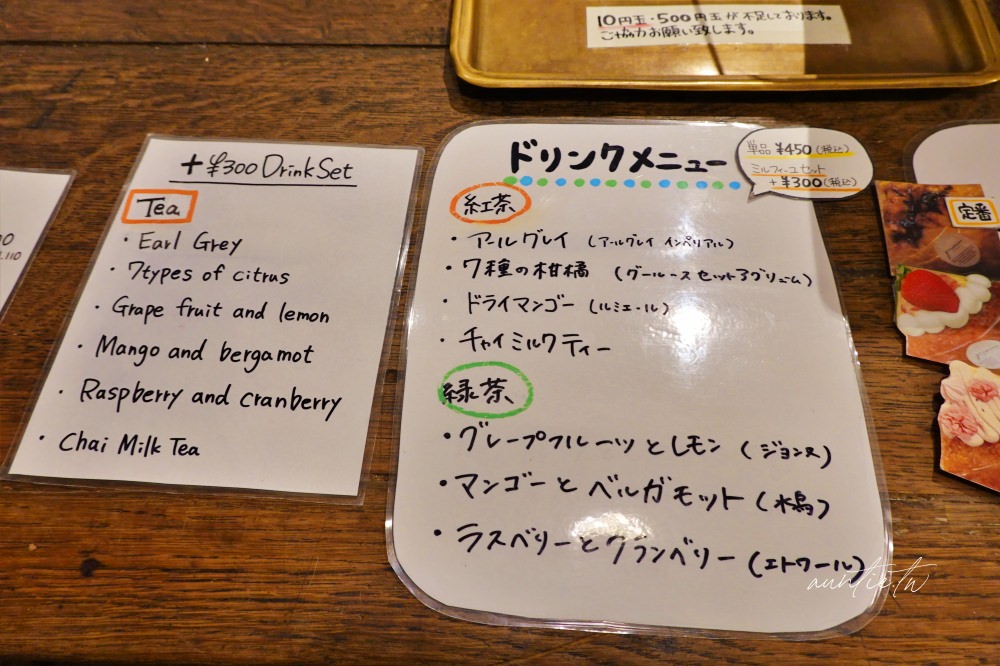 10円玉・500円玉が不足しております。
ご協力お願い致します。
+ ¥300 Drink Set
Tea
・Earl Grey
・7types of citrus
・Grape fruit and lemon
・Mango and bergamot
・Raspberry and cranberry
・Chai Milk Tea
ドリンクメニュー
単品 ¥450(税込)
ミルフィーユセット
+¥300(税込)
紅茶
・アールグレイ (アールグレイ インペリアル)
・7種の柑橘
・ドライマンゴー (ルミエール)
・チャイミルクティー
緑茶
・グレープフルーツとレモン (ジョンヌ)
・マンゴーとベルガモット
・ラズベリーとクランベリー (エトワール)
定番
auntie.tw